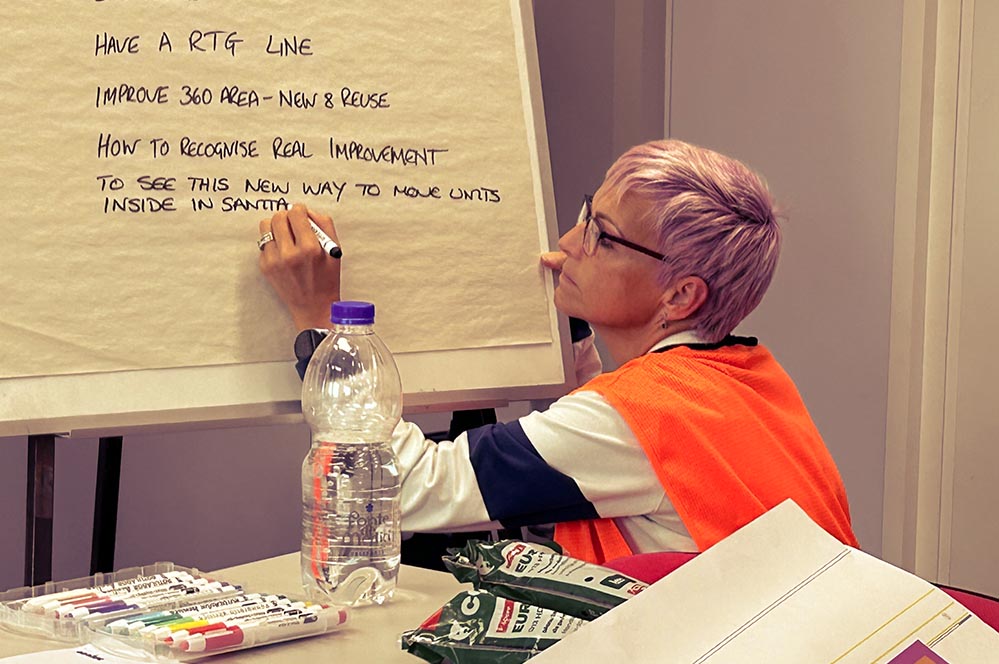 HAVE A RTG LINE
IMPROVE 360 AREA - NEW & REUSE
HOW TO RECOGNISE REAL IMPROVEMENT
TO SEE THIS NEW WAY TO MOVE UNITS
INSIDE IN SANTTA
EUR
EUR